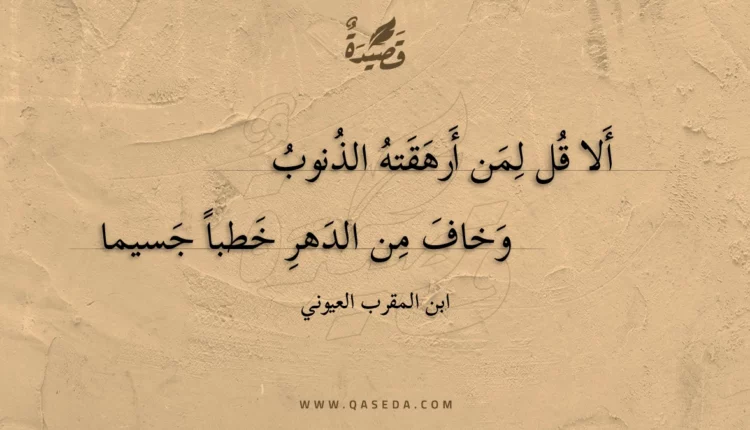 قَصِيْدَةٌ
أَلا قُل لِمَن أَرهَقَتهُ الذُنوبُ
وَخافَ مِن الدَهرِ خَطباً جَسيما
ابن المقرب العيوني
WWW.QASEDA.COM